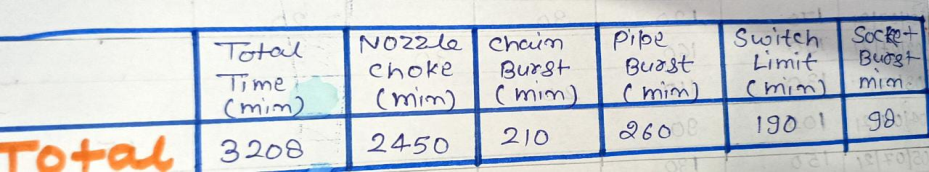 Total
Time
(min)
Nozzle
choke
(min)
Chain
Burst
(min)
Pipe
Burst
(min)
Switch
Limit
(min)
Socket
Burst
min.
Total
3208
2450
210
260
190
98